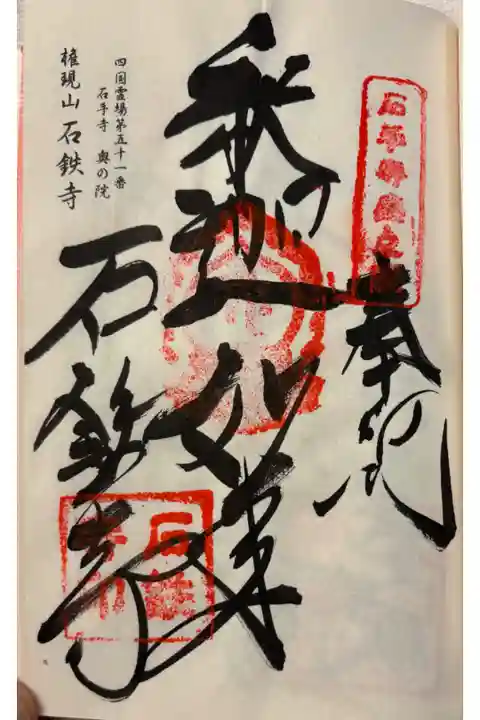 石手寺奥之院
奉納
釈迦如来
石鉄寺
四国霊場第五十一番
石手寺 奥の院
権現山 石鉄寺